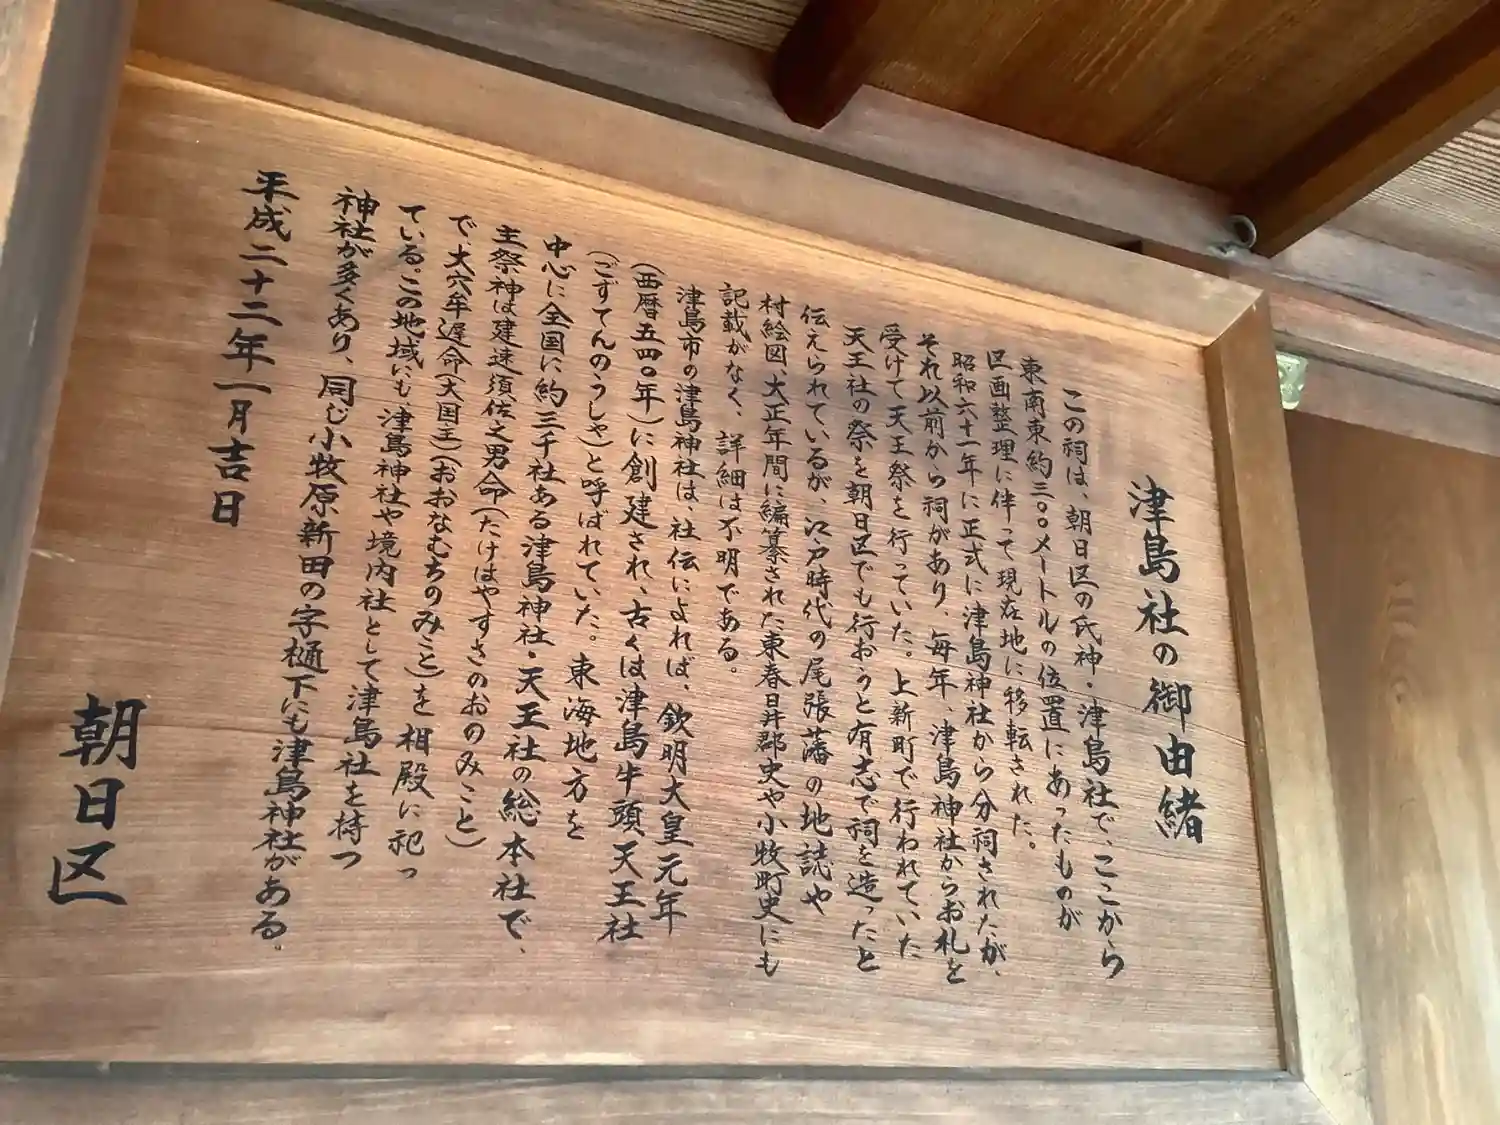 津島社の御由緒
この祠は、朝日区の氏神・津島社で、ここから
東南東約三〇〇メートルの位置にあったものが
区画整理に伴って現在地に移転された。
昭和六十一年に正式に津島神社から分祠されたが、
それ以前から祠があり、毎年、津島神社からお札を
受けて天王祭を行っていた。上新町で行われていた
天王社の祭を朝日区でも行おうと有志で祠を造ったと
伝えられているが、江戸時代の尾張藩の地誌や
村絵図、大正年間に編纂された東春日井郡史や小牧町史にも
記載がなく、詳細は不明である。
津島市の津島神社は、社伝によれば、欽明大皇元年
(西暦五四〇年)に創建され、古くは津島牛頭天王社
(ごずてんのうしゃ)と呼ばれていた。東海地方を
中心に全国に約三千社ある津島神社・天王社の総本社で、
主祭神は建速須佐之男命(たけはやすさのおのみこと)
で、大穴牟遅命(大国主)(おおなむちのみこと)を相殿に祀っ
ている。この地域にも津島神社や境内社として津島社を持つ
神社が多くあり、同じ小牧原新田の字樋下にも津島神社がある。
平成二十二年一月吉日
朝日区